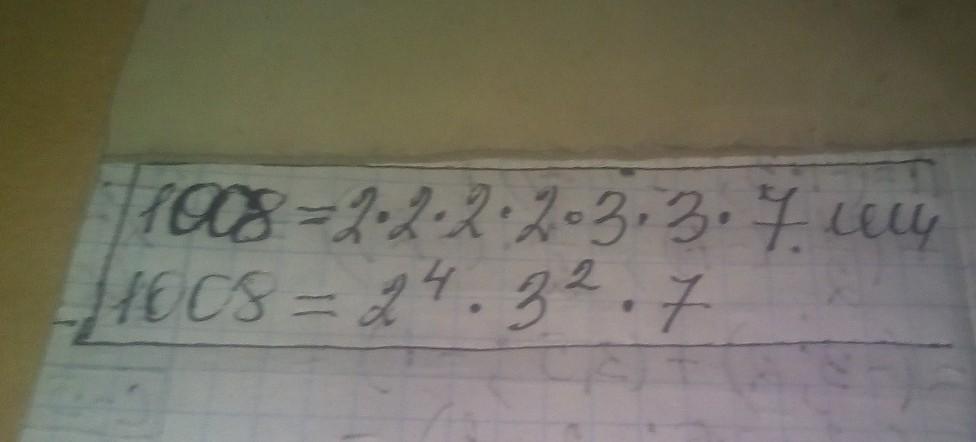 1008 = 2·2·2·2·3·3·7. или
1008 = 2⁴ · 3² · 7